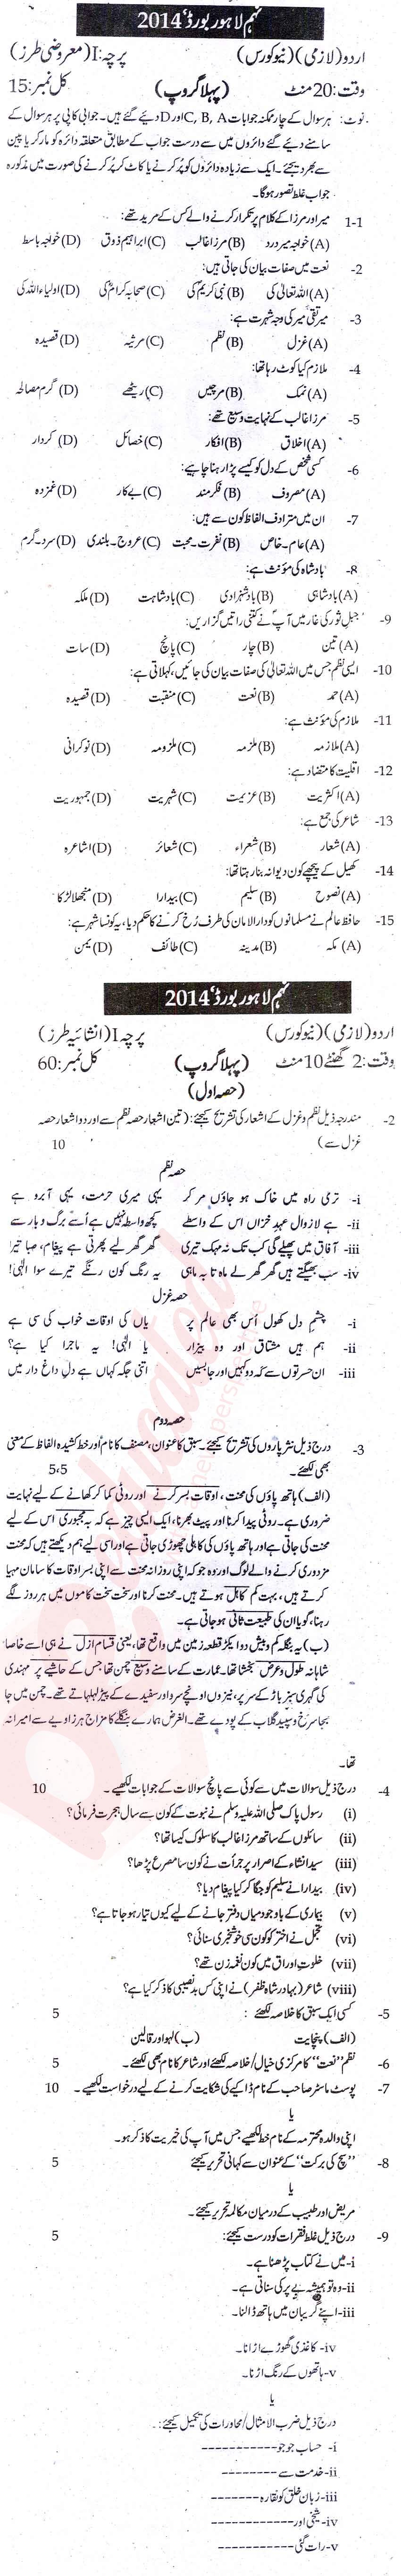 نہم لاہور بورڈ، 2014
اردو (لازمی) (نیو کورس) پرچہ: I (معروضی طرز)
وقت: 20 منٹ (پہلا گروپ) کل نمبر: 15
نوٹ: ہر سوال کے چار ممکنہ جوابات C, B, A اور D دیئے گئے ہیں۔ جوابی کاپی پر ہر سوال کے
سامنے دیئے گئے دائروں میں سے درست جواب کے مطابق متعلقہ دائرہ کو مارکر یا پین
سے بھر دیجئے۔ ایک سے زیادہ دائروں کو پُر کرنے یا کاٹ کر پُر کرنے کی صورت میں مذکورہ
جواب غلط تصور ہوگا۔
1-1 میر اور مرزا کے کلام پر تکرار کرنے والے کس کے مرید تھے:
(A) خواجہ میر درد (B) مرزا غالب (C) ابراہیم ذوق (D) خواجہ باسط
2- نعت میں صفات بیان کی جاتی ہیں:
(A) اللہ تعالیٰ کی (B) نبی کریمؐ کی (C) صحابہ کرامؓ کی (D) اولیاء اللہ کی
3- میر تقی میر کی وجہ شہرت ہے:
(A) غزل (B) نظم (C) مرثیہ (D) قصیدہ
4- ملازم کیا کوٹ رہا تھا:
(A) نمک (B) مرچیں (C) ریٹھے (D) گرم مصالحہ
5- مرزا غالب کے نہایت وسیع تھے:
(A) اخلاق (B) افکار (C) خصائل (D) کردار
6- کسی شخص کے دل کو کیسے پڑا رہنا چاہیے:
(A) مصروف (B) فکرمند (C) بے کار (D) غمزدہ
7- ان میں مترادف الفاظ کون سے ہیں:
(A) عام۔خاص (B) نفرت۔محبت (C) عروج۔بلندی (D) سرد۔گرم
8- بادشاہ کی مؤنث ہے:
(A) بادشاہی (B) بادشہزادی (C) بادشاہت (D) ملکہ
9- جبل ثور کی غار میں آپؐ نے کتنی راتیں گزاریں:
(A) تین (B) چار (C) پانچ (D) سات
10- ایسی نظم جس میں اللہ تعالیٰ کی صفات بیان کی جائیں، کہلاتی ہے:
(A) حمد (B) نعت (C) منقبت (D) قصیدہ
11- ملازم کی مؤنث ہے:
(A) ملازمہ (B) ملزمہ (C) ملزومہ (D) نوکرانی
12- اقلیت کا متضاد ہے:
(A) اکثریت (B) عزیمت (C) شہریت (D) جمہوریت
13- شاعر کی جمع ہے:
(A) شعار (B) شعراء (C) شعائر (D) اشاعرہ
14- کھیل کے پیچھے کون دیوانہ بنا رہتا تھا:
(A) نصوح (B) سلیم (C) بیدارا (D) منجھلا لڑکا
15- حافظ عالم نے مسلمانوں کو دارالامان کی طرف رُخ کرنے کا حکم دیا، یہ کونسا شہر ہے:
(A) مکہ (B) مدینہ (C) طائف (D) یمن
نہم لاہور بورڈ، 2014
اردو (لازمی) (نیو کورس) پرچہ I (انشائیہ طرز)
وقت: 2 گھنٹے 10 منٹ (پہلا گروپ) کل نمبر: 60
(حصہ اول)
2- مندرجہ ذیل نظم و غزل کے اشعار کی تشریح کیجئے: (تین اشعار حصہ نظم سے اور دو اشعار حصہ
غزل سے) 10
حصہ نظم
i- تری راہ میں خاک ہو جاؤں مر کر یہی میری حرمت، یہی آبرو ہے
ii- ہے لازوال عہدِ خزاں اس کے واسطے کچھ واسطہ نہیں ہے اُسے برگ و بار سے
iii- آفاق میں پھیلے گی کب تک نہ مہک تیری گھر گھر لیے پھرتی ہے پیغام، صبا تیرا
iv- سب بھیگتے ہیں گھر گھر لے ماہ تا بہ ماہی یہ رنگ کون رنگے تیرے سوا الٰہی!
حصہ غزل
i- چشمِ دل کھول اُس بھی عالم پر یاں کی اوقات خواب کی سی ہے
ii- ہم ہیں مشتاق اور وہ بیزار یا الٰہی! یہ ماجرا کیا ہے؟
iii- ان حسرتوں سے کہہ دو کہیں اور جا بسیں اتنی جگہ کہاں ہے دلِ داغ دار میں
حصہ دوم
3- درج ذیل نثر پاروں کی تشریح کیجئے۔ سبق کا عنوان، مصنف کا نام اور خط کشیدہ الفاظ کے معنی
بھی لکھئے۔ 5،5
(الف) ہاتھ پاؤں کی محنت، اوقات بسر کرنے اور روٹی کما کر کھانے کے لیے نہایت
ضروری ہے۔ روٹی پیدا کرنا اور پیٹ بھرنا، ایک ایسی چیز ہے کہ بہ مجبوری اس کے لیے
محنت کی جاتی ہے اور ہاتھ پاؤں کی کاہلی چھوڑی جاتی ہے اور اسی لیے ہم دیکھتے ہیں کہ محنت
مزدوری کرنے والے لوگ اور وہ جو کہ اپنی روزانہ محنت سے اپنی بسر اوقات کا سامان مہیا
کرتے ہیں، بہت کم کاہل ہوتے ہیں۔ محنت کرنا اور سخت سخت کاموں میں ہر روز لگے
رہنا، گویا ان کی طبیعت ثانی ہو جاتی ہے۔
(ب) یہ بنگلہ کم و بیش دو ایکڑ قطعہ زمین میں واقع تھا، یعنی قسام ازل نے ہی اسے خاصا
شاہانہ طول و عرض بخشا تھا۔ عمارت کے سامنے وسیع چمن تھا جس کے حاشیے پر مہندی
کی گہری سبز باڑ کے سر پر، نیزوں اونچے سرو اور سفیدے کے پیڑ لہلہاتے تھے۔ چمن میں جا
بجا سرخ و سپید گلاب کے پودے تھے۔ الغرض ہمارے بنگلے کا مزاج ہر زاویے سے امیرانہ
تھا۔
4- درج ذیل سوالات میں سے کوئی سے پانچ سوالات کے جوابات لکھیے۔ 10
(i) رسول پاک صلی اللہ علیہ وسلم نے نبوت کے کون سے سال ہجرت فرمائی؟
(ii) سائلوں کے ساتھ مرزا غالب کا سلوک کیسا تھا؟
(iii) سید انشاء کے اصرار پر جرأت نے کون سا مصرع پڑھا؟
(iv) بیدارا نے سلیم کو جگا کر کیا پیغام دیا؟
(v) بیماری کے باوجود میاں دفتر جانے کے لیے کیوں تیار ہو جاتا ہے؟
(vi) تجمل نے اختر کو کون سی خوشخبری سنائی؟
(vii) خلوت اوراق میں کون نغمہ زن تھے؟
(viii) شاعر (بہادر شاہ ظفر) نے اپنی کس بدنصیبی کا ذکر کیا ہے؟
5- کسی ایک سبق کا خلاصہ لکھئے: 5
(الف) پنچایت (ب) لہو اور قالین
6- نظم ”نعت“ کا مرکزی خیال/خلاصہ لکھئے اور شاعر کا نام بھی لکھئے۔ 5
7- پوسٹ ماسٹر صاحب کے نام ڈاکیے کی شکایت کرنے کے لیے درخواست لکھیے۔ 10
یا
اپنی والدہ محترمہ کے نام خط لکھیے جس میں آپ کی خیریت کا ذکر ہو۔
8- ”سچ کی برکت“ کے عنوان سے کہانی تحریر کیجئے 5
یا
مریض اور طبیب کے درمیان مکالمہ تحریر کیجئے۔
9- درج ذیل غلط فقرات کو درست کیجئے: 5
i- میں نے کتاب پڑھنا ہے۔
ii- وہ تو ہمیشہ بے پر کی سناتی ہے۔
iii- اپنے گریبان میں ہاتھ ڈالنا۔
iv- کاغذی گھوڑے اڑانا۔
v- ہاتھوں کے رنگ اڑنا۔
یا
درج ذیل ضرب الامثال/محاورات کی تکمیل کیجئے:۔
i- حساب جو جو -----------
ii- خدمت سے --------
iii- زبان خلق کو نقارہ -------
iv- شیخی اور -----------
v- رات گئی -----------